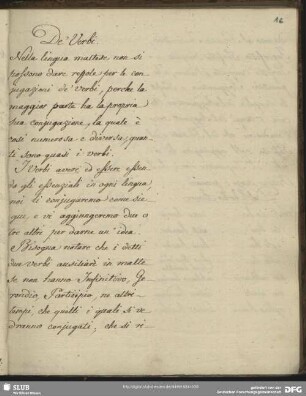 16
De' Verbi
Nella lingua maltese non si
possono dare regole per le con
jugazioni de' verbi, perche la
maggior parte ha la propria
sua conjugazione, la quale è
così numerosa e diversa, quan
ti sono quasi i verbi.
I Verbi avere, ed essere essen
do gli essenziali in ogni lingua,
noi li conjugaremo come sie
gue, e vi aggiungeremo due o
tre altri per darne un' idea.
Bisogna notare che i detti
due verbi ausiliarj in malte
se non hanno Infinitivo, Ge
rondio, Participio, ne altri
tempi, che quelli i quali si ve
dranno conjugati; che si ri-
SLUB
DFG